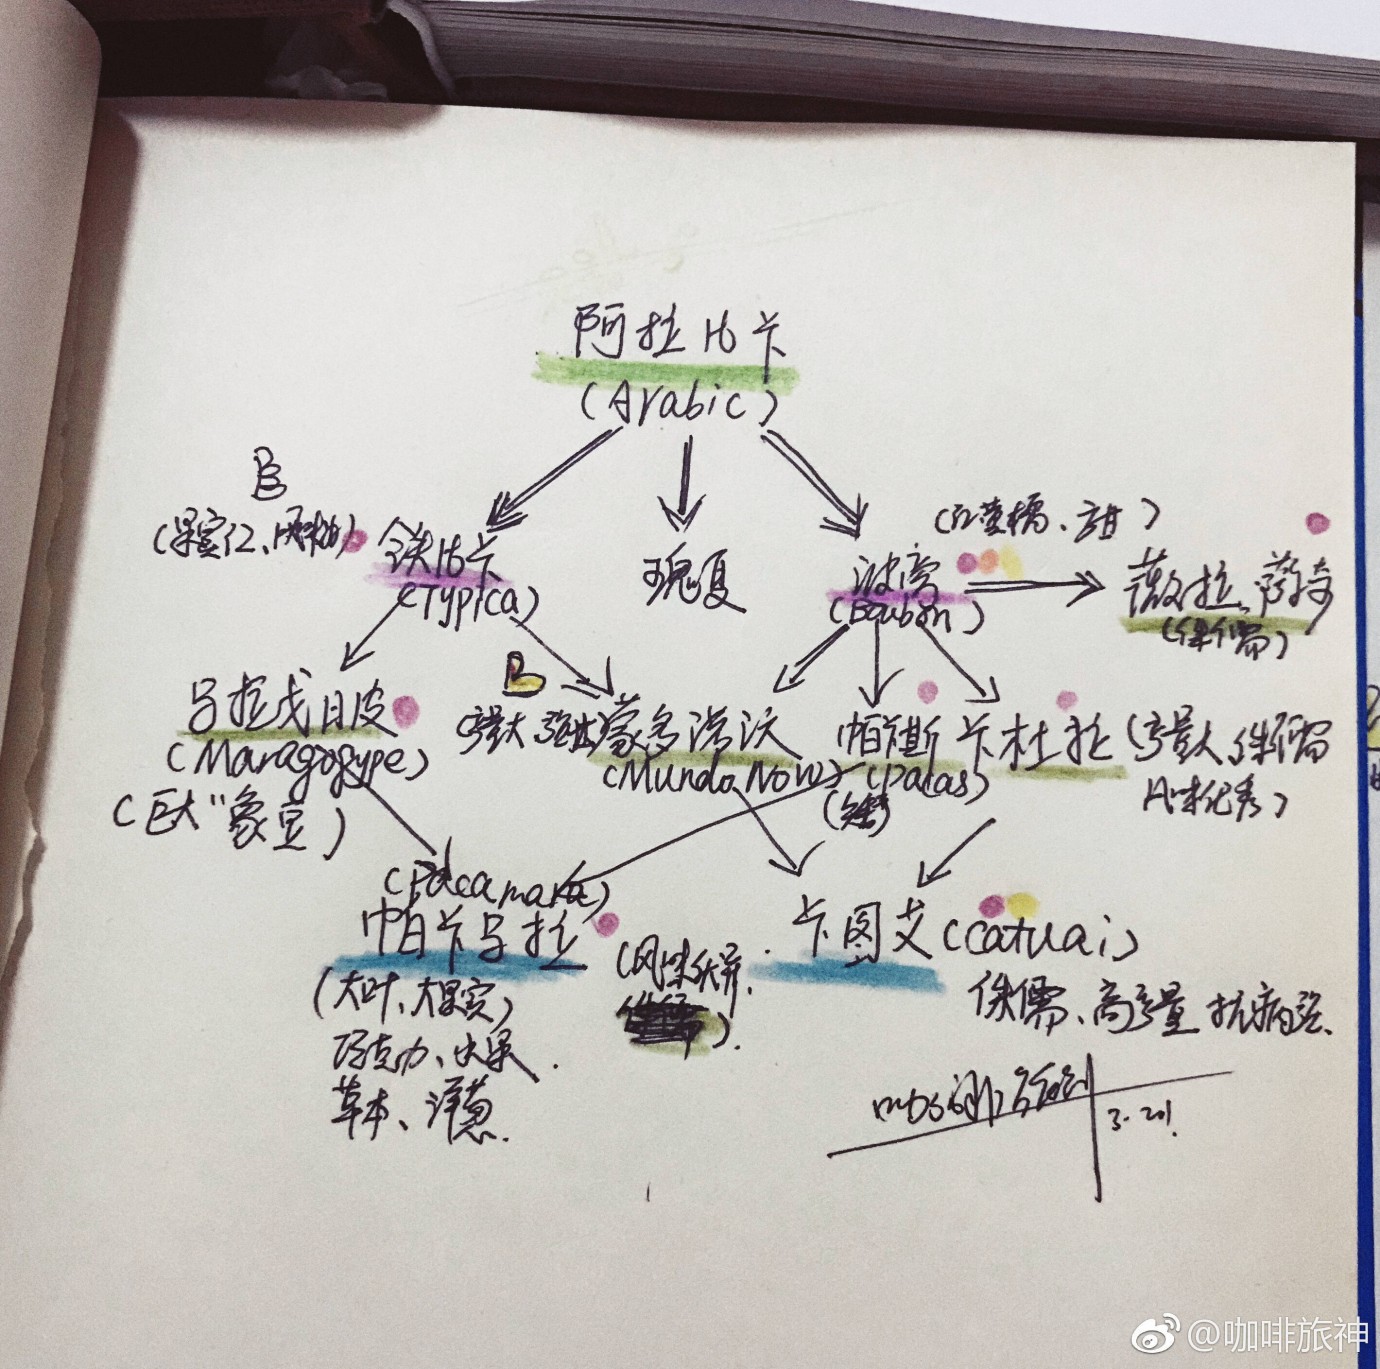 阿拉比卡
(Arabic)
B
(果实红、
铁比卡
(Typica)
瑰夏
(红黄橘、甜)
波旁
(Boubon)
薇拉.萨奇
(侏儒)
马拉戈日皮
(Maragogype)
(巨大"象豆)
B
产量大、
蒙多诺沃
(Mundo Novo)
帕卡斯
(pacas)
卡杜拉
(产量大、侏儒
风味优秀)
(Pacamara)
帕卡马拉
(大叶、大果实)
巧克力、水果.
草本、洋葱.
(风味优异.
).
卡图艾(catuai)
侏儒、高产量 抗病强.
3.20!
@咖啡旅神